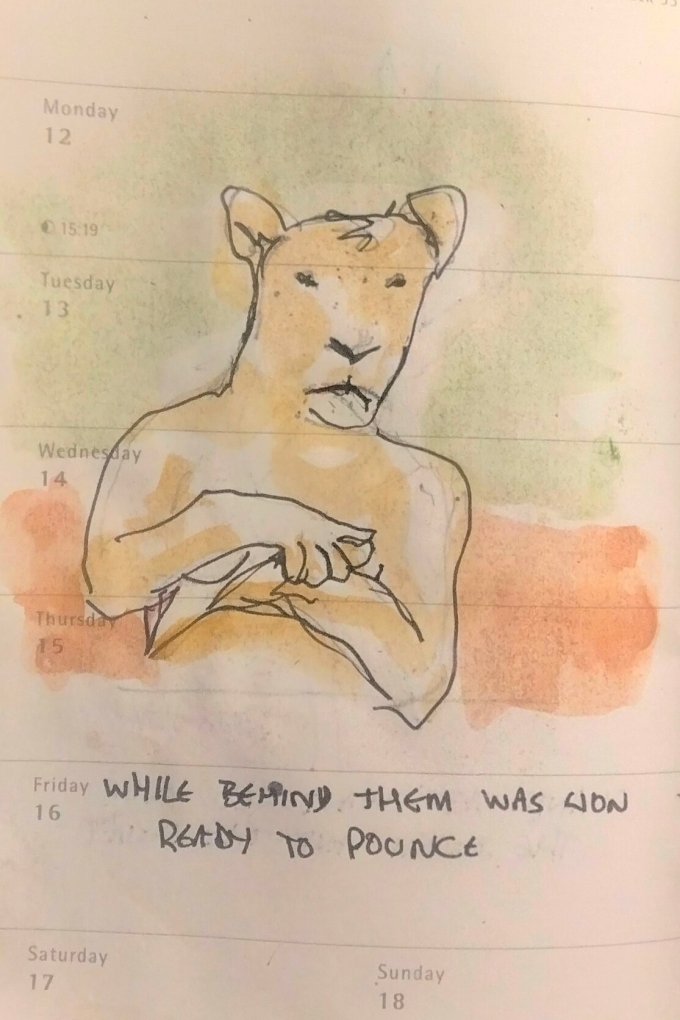 Monday
12
15:19
Tuesday
13
Wednesday
14
Thursday
15
Friday
16
WHILE BEHIND THEM WAS LION
READY TO POUNCE
Saturday
17
Sunday
18